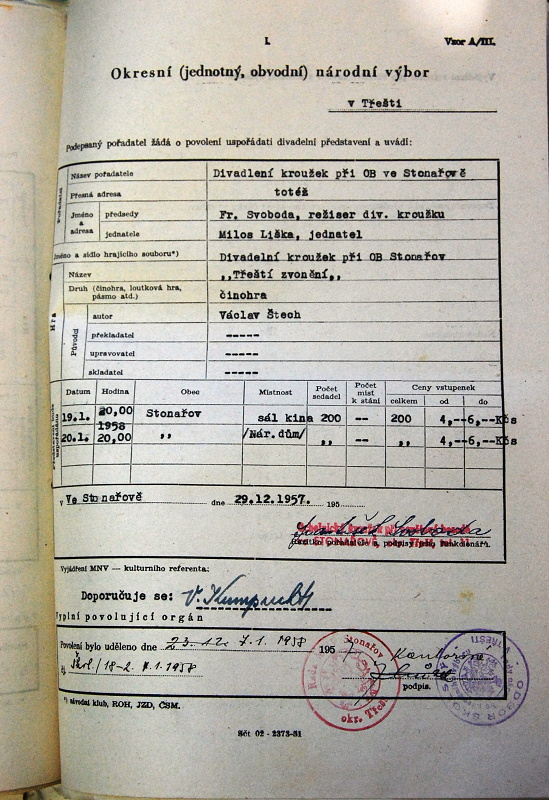 I.
Vzor A/III.
Okresní (jednotný, obvodní) národní výbor
v Třešti
Podepsaný pořadatel žádá o povolení uspořádati divadelní představení a uvádí:
Název pořadatele Divadlení kroužek při OB ve Stonařově
Přesná adresa totéž
Pořadatel
Jméno a adresa předsedy Fr. Svoboda, režiser div. kroužku
jednatele Milos Liška, jednatel
Jméno a sídlo hrajícího souboru*) Divadelní kroužek při OB Stonařov
Název ,,Třeští zvonění,,
Druh (činohra, loutková hra, pásmo atd.) činohra
Hra
Původci
autor Václav Štech
překladatel -----
upravovatel -----
skladatel -----
Datum Hodina Obec Místnost Počet sedadel Počet míst k stání Ceny vstupenek
celkem od do
19.1. 20,00 Stonařov sál kina 200 -- 200 4,--6,--Kčs
1958
20.1. 20,00 ,, /Nár.dům/ ,, -- ,, 4,--6,--Kčs
v Ve Stonařově dne 29.12.1957. 195
Vyjádření MNV — kulturního referenta:
Doporučuje se:
Vyplní povolující orgán
Povolení bylo uděleno dne 23.12. 7.1.1958 195
čj. Škol/18-2. 7.1.1958
podpis.
Rada
Stonařov
okr. Třešť
ODBOR
V TŘEŠTI
*) národní klub, ROH, JZD, ČSM.
Sčt 02 - 2373-51